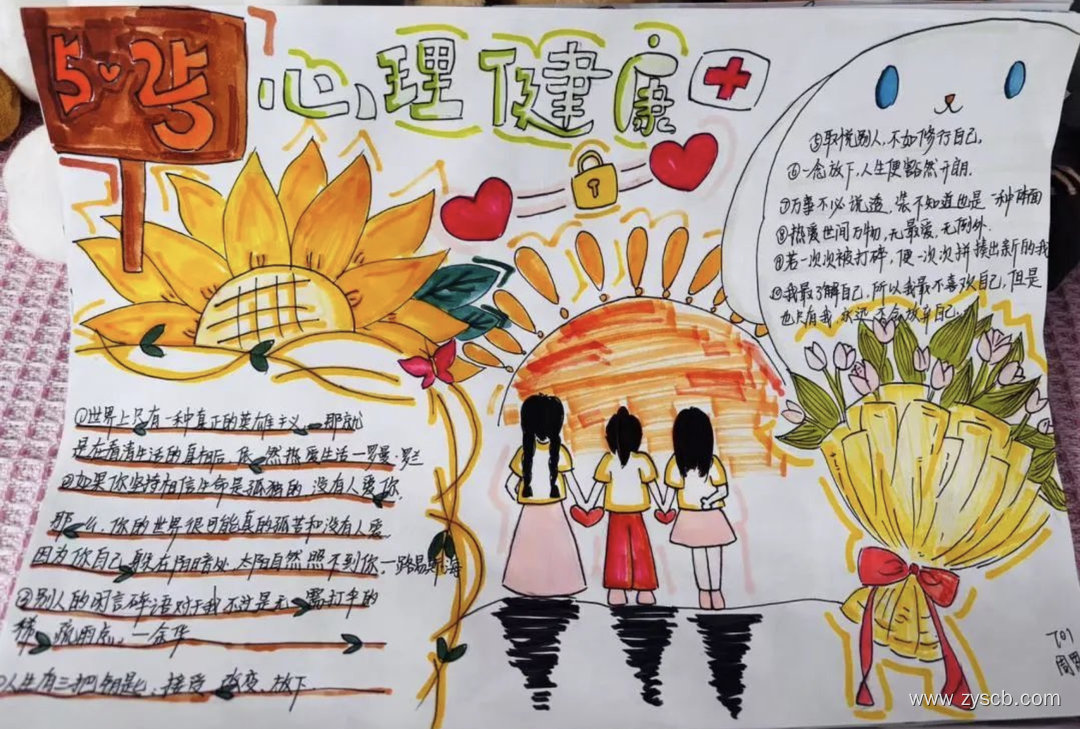 5·25
心理健康
①世界上只有一种真正的英雄主义,那就
是在看清生活的真相后,依然热爱生活一罗曼·罗兰
②如果你坚持相信生命是孤独的,没有人爱你,
那么,你的世界很可能真的孤苦和没有人爱
因为你自己躲在阴暗处,太阳自然照不到你,一路易斯·海
③别人的闲言碎语对于我不过是无
稀疏雨点,一余华
人生有三把钥匙,接受、改变、放下
⑤取悦别人,不如修行自己,
⑥一念放下,人生便豁然开朗.
⑦万事不必说透,装不知道也是一种体面
⑧热爱世间万物,无最爱,无例外.
⑨若一次次被打碎,便一次次拼接出新的我
⑩我最了解自己,所以我最不喜欢自己,但是
也只有我,永远不会放弃自己
701
周
www.zyscb.com